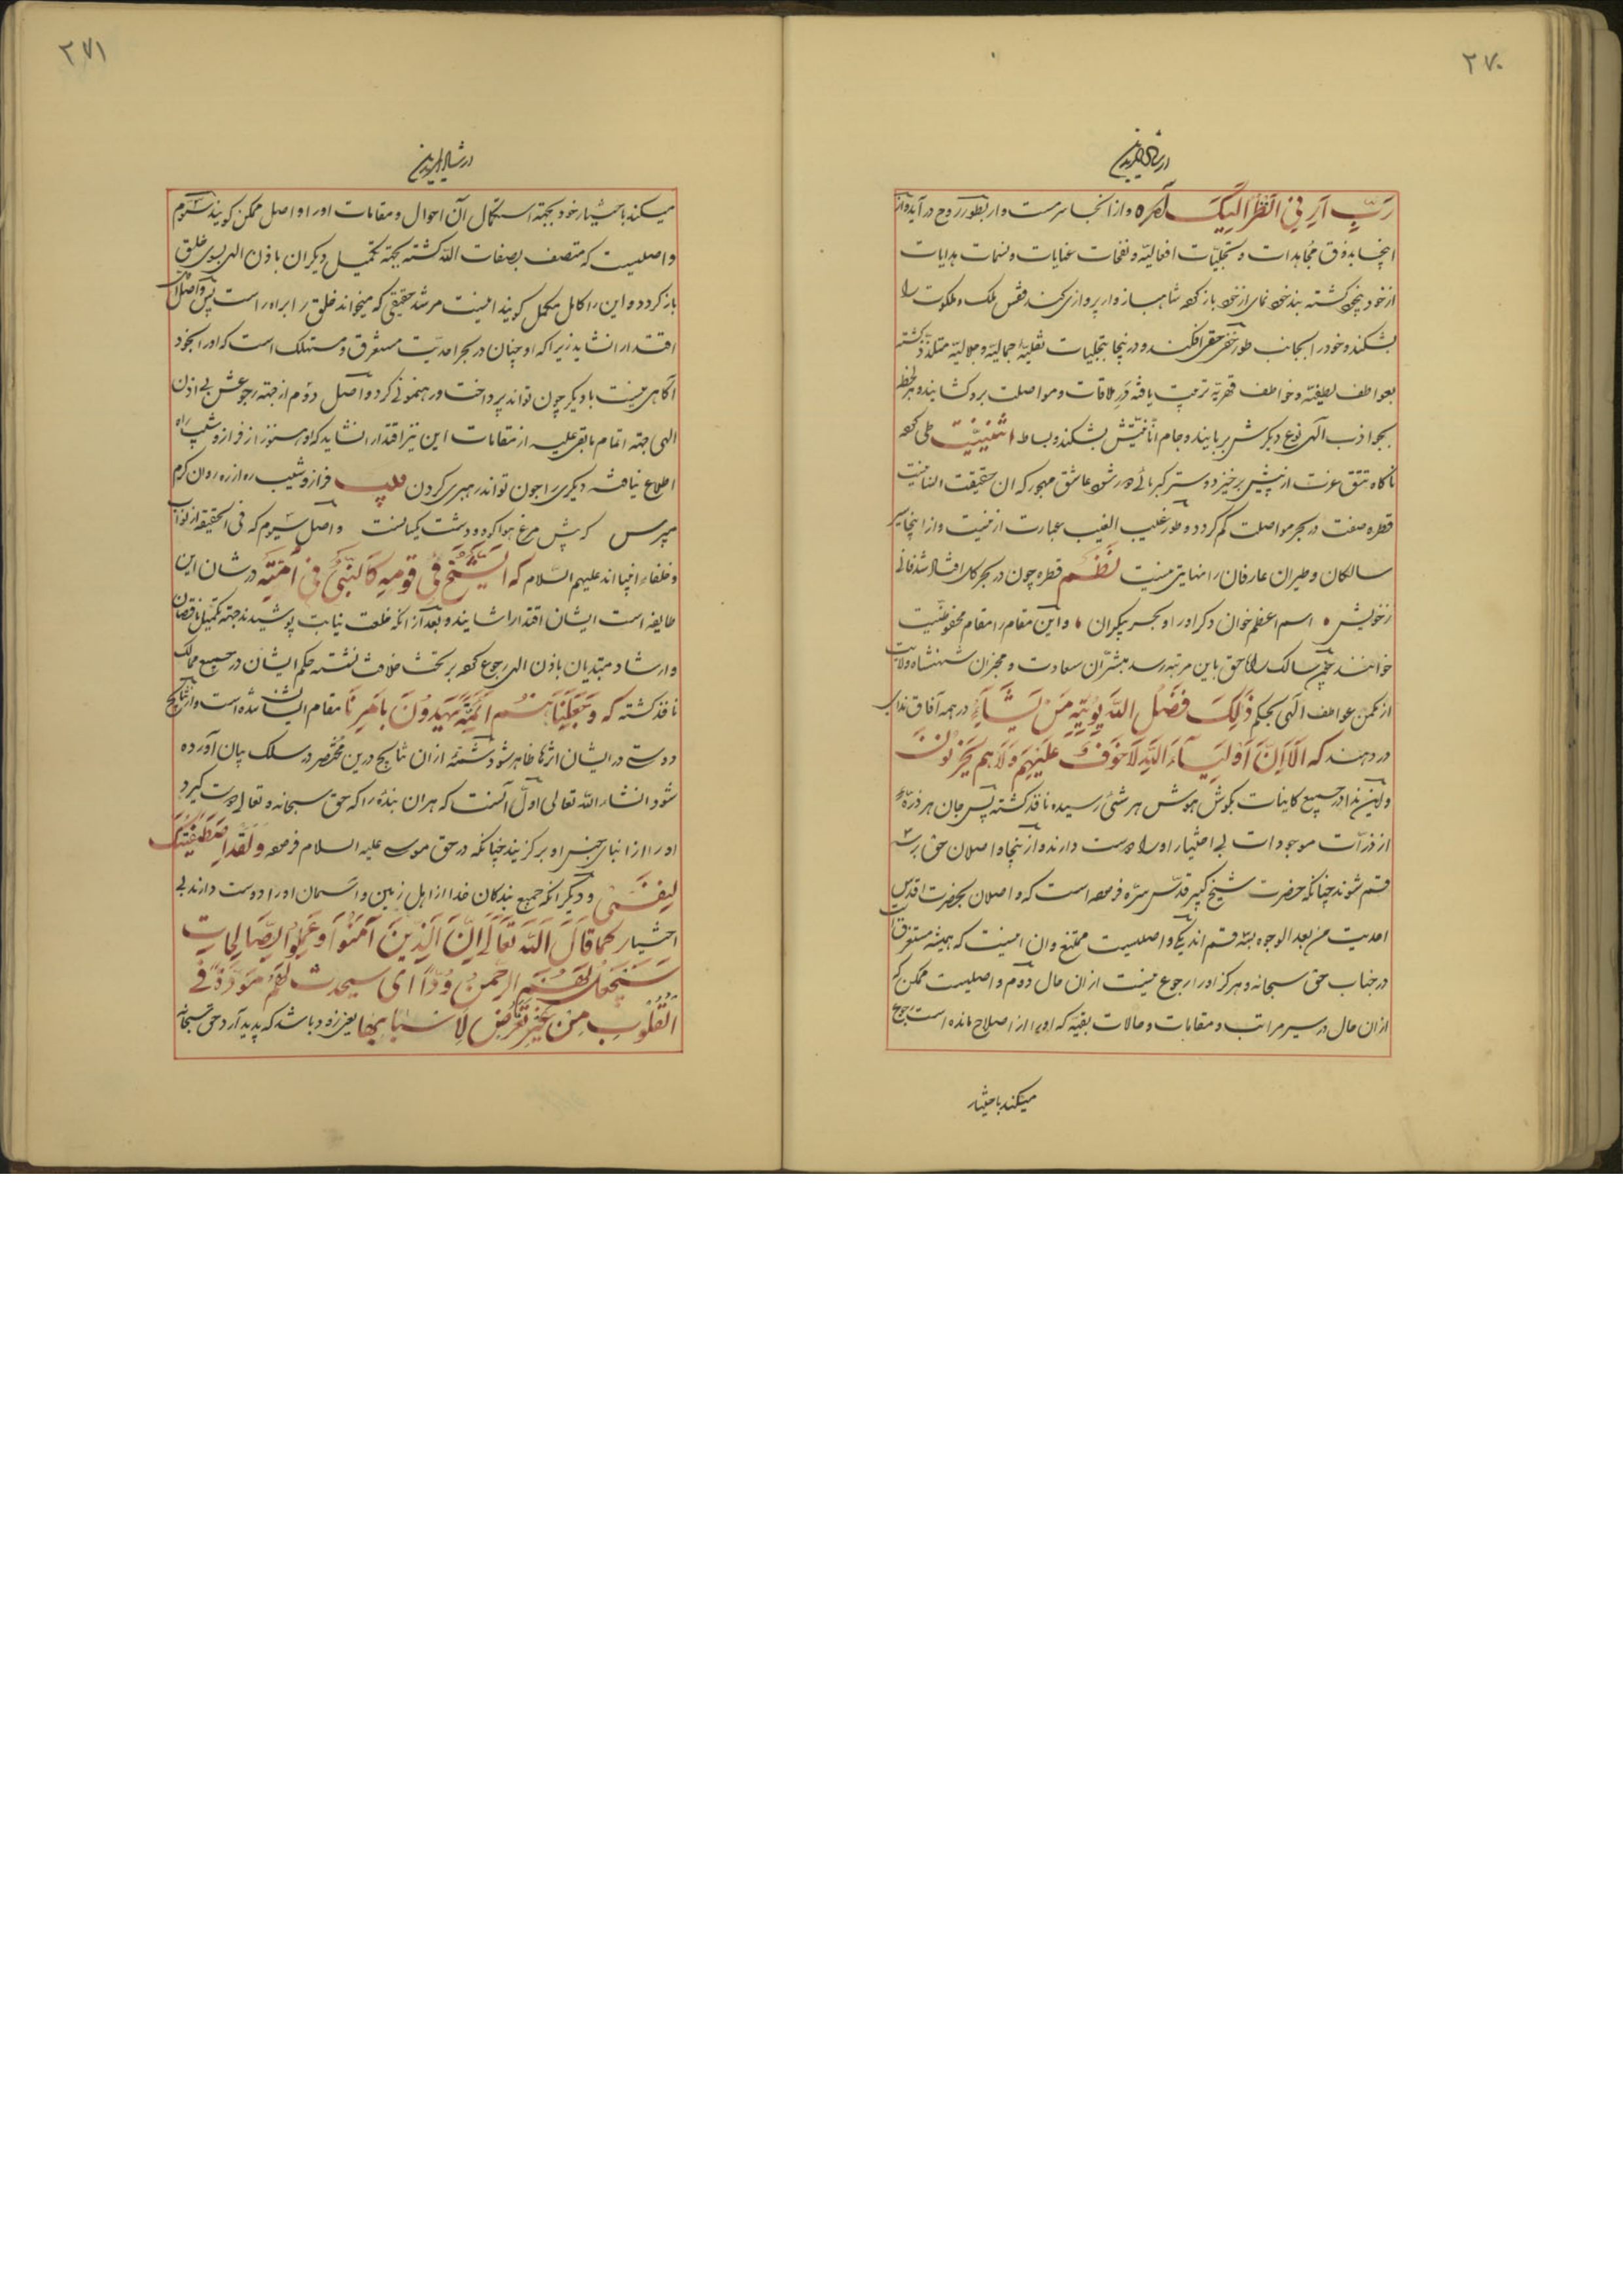 ٢٧٠
ارشاد المریدین
رَبِّ اَرِنی اَنْظُرْ اِلَیْکَ وازانجا سرمست وار بطور روح درآید واز
اینجا بذوق مجاهدات و تجلیّات افعالیّه و نفحات عنایات و نسمات هدایات
ازخود بیخود کشته بند نمای ازخود باز کرده شاهباز وار پرواز کند قفس ملک و ملکوت را
بشکند وخودرا بجانب طور خفی افکند ودرینجا بتجلیات جمالیّه وجلالیّه متلذذ کشته
بعواطف لطیفیّه وخواطف قهریّه تربیت یافته درِ ملاقات ومواصلت برو کشایند وهر لحظه
بجواذب الهی نوع دیگرش بربایند وجام انانیّتش بشکند وبساط اثنینیّت طی کرده
ناکاه تتق عزت از پیش برخیزد وستر کبریائی عاشق مهجور که ان حقیقت انسانیت
قطره صفت در بحر مواصلت کم کردد وطور غیب الغیب عبارت ازینست وازاینجا سیر
سالکان وطیران عارفان را نهایتی نیست نظم قطره چون در بحر کل افتاد شد فانی
زخویش اسم اعظم خوان دکر اورا و بحر بیکران واین مقام را مقام محفوظیت
خوانند چون سالک راه حق باین مرتبه رسد مبشّران سعادت ومخبران شهنشاه ولایت
از مکمن عواطف الهی بحکم ذٰلِکَ فَضْلُ اللّٰهِ یُؤْتِیهِ مَنْ یَشَاءُ در همه آفاق ندا
در دهند که اَلَا اِنَّ اَوْلِیَاءَ اللّٰهِ لَا خَوْفٌ عَلَیْهِمْ وَلَا هُمْ یَحْزَنُونَ
واین ندا در جمیع کاینات بکوش هوش هر شئ رسیده نافذ کشته پس جان هر ذرّه
از ذرّات موجودات بی اختیار اورا دوست دارند وازینجا واصلان حق برسه
قسم شوند چنانکه حضرت شیخ کبیر قدّس سرّه فرموده است که واصلان بحضرت اقدس
احدیت من بعد الوجوه بسه قسم اند یکی واصلیست ممتنع وان اینست که همیشه مستغرق
درجناب حق سبحانه وهرکز اورا رجوع نیست ازان حال دوم واصلیست ممکن که
ازان حال در سیر مراتب ومقامات وحالات بقیه که اورا از اصلاح مانده است رجوع
میکند باختیار
٢٧١
ارشاد المریدین
میکند باختیار خود بجهة استکمال آن احوال ومقامات اورا واصل ممکن کویند سیوم
واصلیست که متصف بصفات اللّٰه کشته بجهة تکمیل دیکران باذن الهی بسوی خلق
باز کردد واین را کامل مکمل کویند اینست مرشد حقیقی که میخواند خلق را براه راست پس واصل اول
اقتدار انشاید زیرا که اوچنان در بحر احدیّت مستغرق ومستهلک است که اورا بخود
آکاهی نیست با دیکر چون تواند پرداخت ورهنمونی کرد واصل دوم ازجهة رجوعش بی اذن
الهی جهة اتمام مابقی علیه از مقامات این نیز اقتدار انشاید که او هنوز از فراز وشیب راه
اطلاع نیافته دیکری را چون تواند رهبری کردن فراز وشیب ره از ره روان کرم
مپرس که پیش مرغ هوا کوه ودشت یکسانست واصل سیوم که فی الحقیقة از نواب
وخلفاء انبیا اند علیهم السّلام که اَلشَّیْخُ فِی قَوْمِهِ کَالنَّبِیِّ فِی اُمَّتِهِ درشان این
طایفه است ایشان اقتدار اشایند وبعد ازانکه خلعت نیابت پوشیدند جهة تکمیل ناقصان
وارشاد مبتدیان باذن الهی رجوع کرده بر تخت خلافت نشسته حکم ایشان در جمیع ممالک
نافذ کشته که وَجَعَلْنَاهُمْ اَئِمَّةً یَهْدُونَ بِاَمْرِنَا مقام ایشان شده است وازنتایج
دوستی در ایشان اثرها ظاهر شود شمّهٔ ازان نتایج درین مختصر در سلک بیان آورده
شود انشاء اللّٰه تعالی اوّل آنست که هران بندهٔ را که حق سبحانه وتعالی دوست کیرد
اورا از ابنای جنس او برکزیند چنانکه درحق موسی علیه السلام فرموده وَلَقَدِ اصْطَفَیْتُکَ
لِنَفْسِی ودیکر انکه جمیع بندکان خدا از اهل زمین واسمان اورا دوست دارند بی
اختیار کَمَا قَالَ اللّٰهُ تَعَالٰی اِنَّ الَّذِینَ آمَنُوا وَعَمِلُوا الصَّالِحَاتِ
سَیَجْعَلُ لَهُمُ الرَّحْمٰنُ وُدًّا ای سیحدث لَهُمْ مَوَدَّةً فِی
الْقُلُوبِ مِنْ غَیْرِ تَعَرُّضٍ لِاَسْبَابِهَا یعنی زود باشد که پدید آرد حق سبحانه